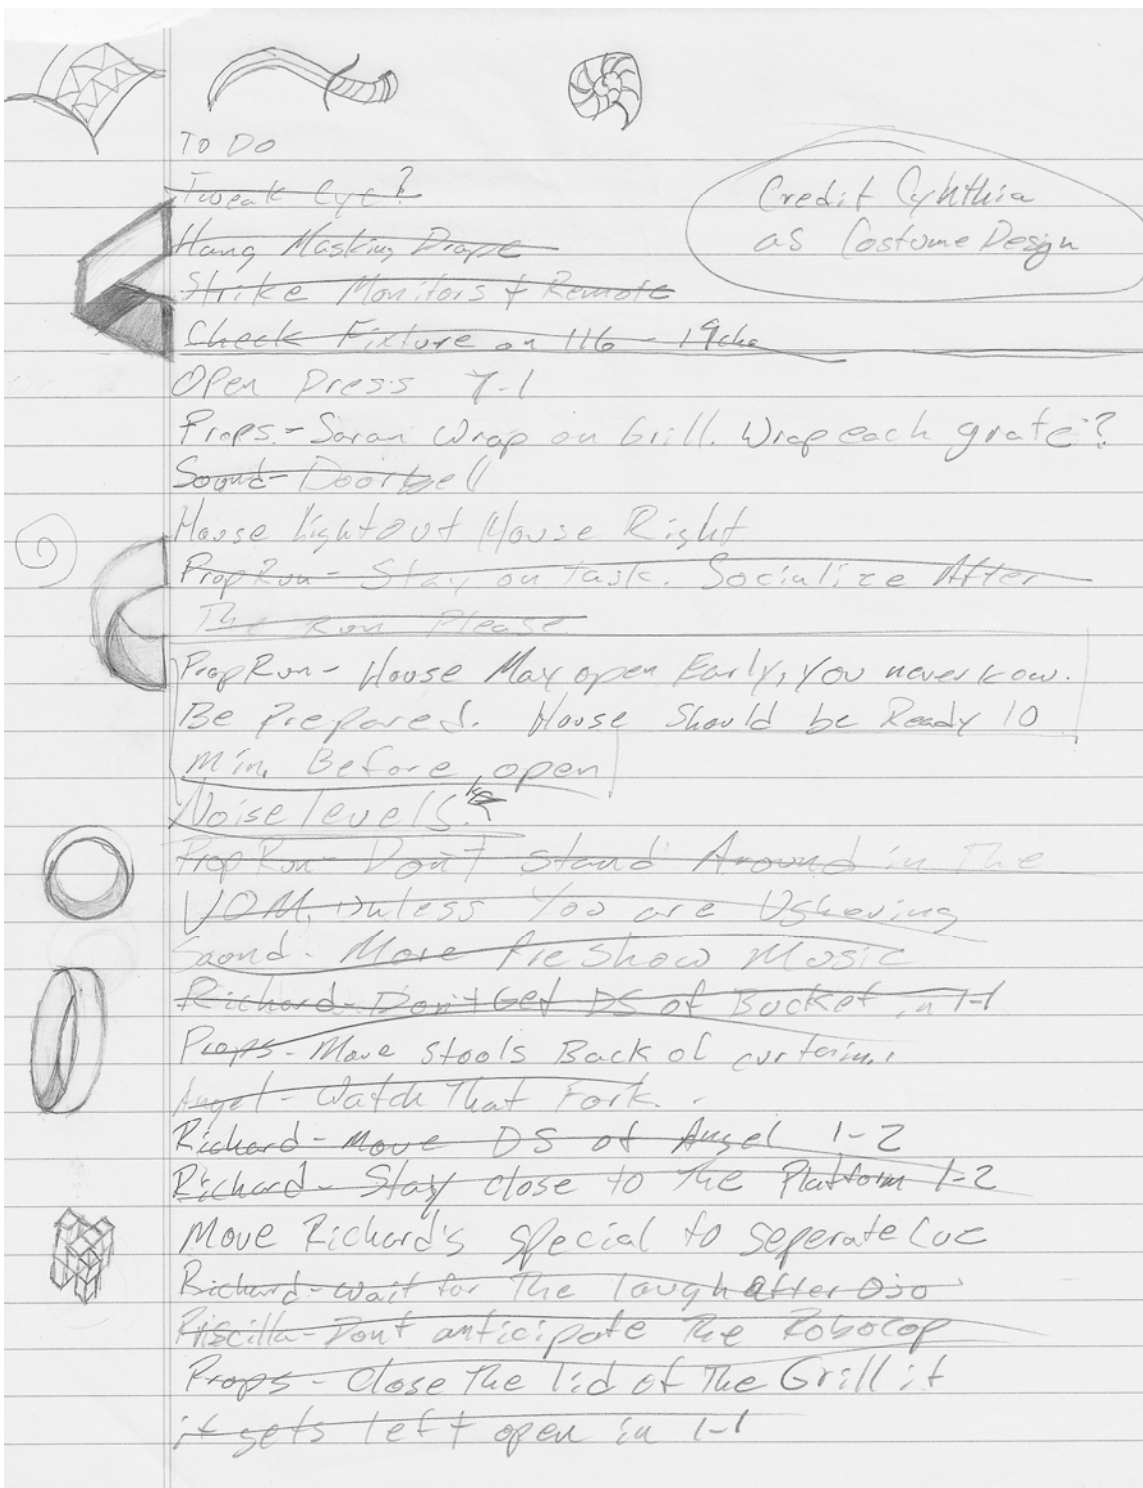 To Do
Tweak Cyc?
Credit Cynthia
as Costume Design
Hang Masking Drape
Strike Monitors & Remote
Check Fixture on 116 - 19
Open Press 7-1
Props - Saran Wrap on Grill. Wrap each grate?
Sound - Doorbell
House light out House Right
Prop Run - Stay on Task. Socialize After
The Run Please.
Prop Run - House May open Early, you never kow.
Be Prepared. House Should be Ready 10
min. Before open
Noise levels.
Prop Run - Don't stand Around in The
VOM, unless You are Ushering
Sound - More Preshow Music
Richard - Don't Get DS of Bucket in 1-1
Props - Move stools Back of curtain.
Angel - Watch That Fork.
Richard - Move DS of Angel 1-2
Richard - Stay close to The Platform 1-2
Move Richard's special to seperate Cue
Richard - wait for The laugh after Ojo
Priscilla - Dont anticipate The Robocop
Props - Close The lid of The Grill if
it gets left open in 1-1